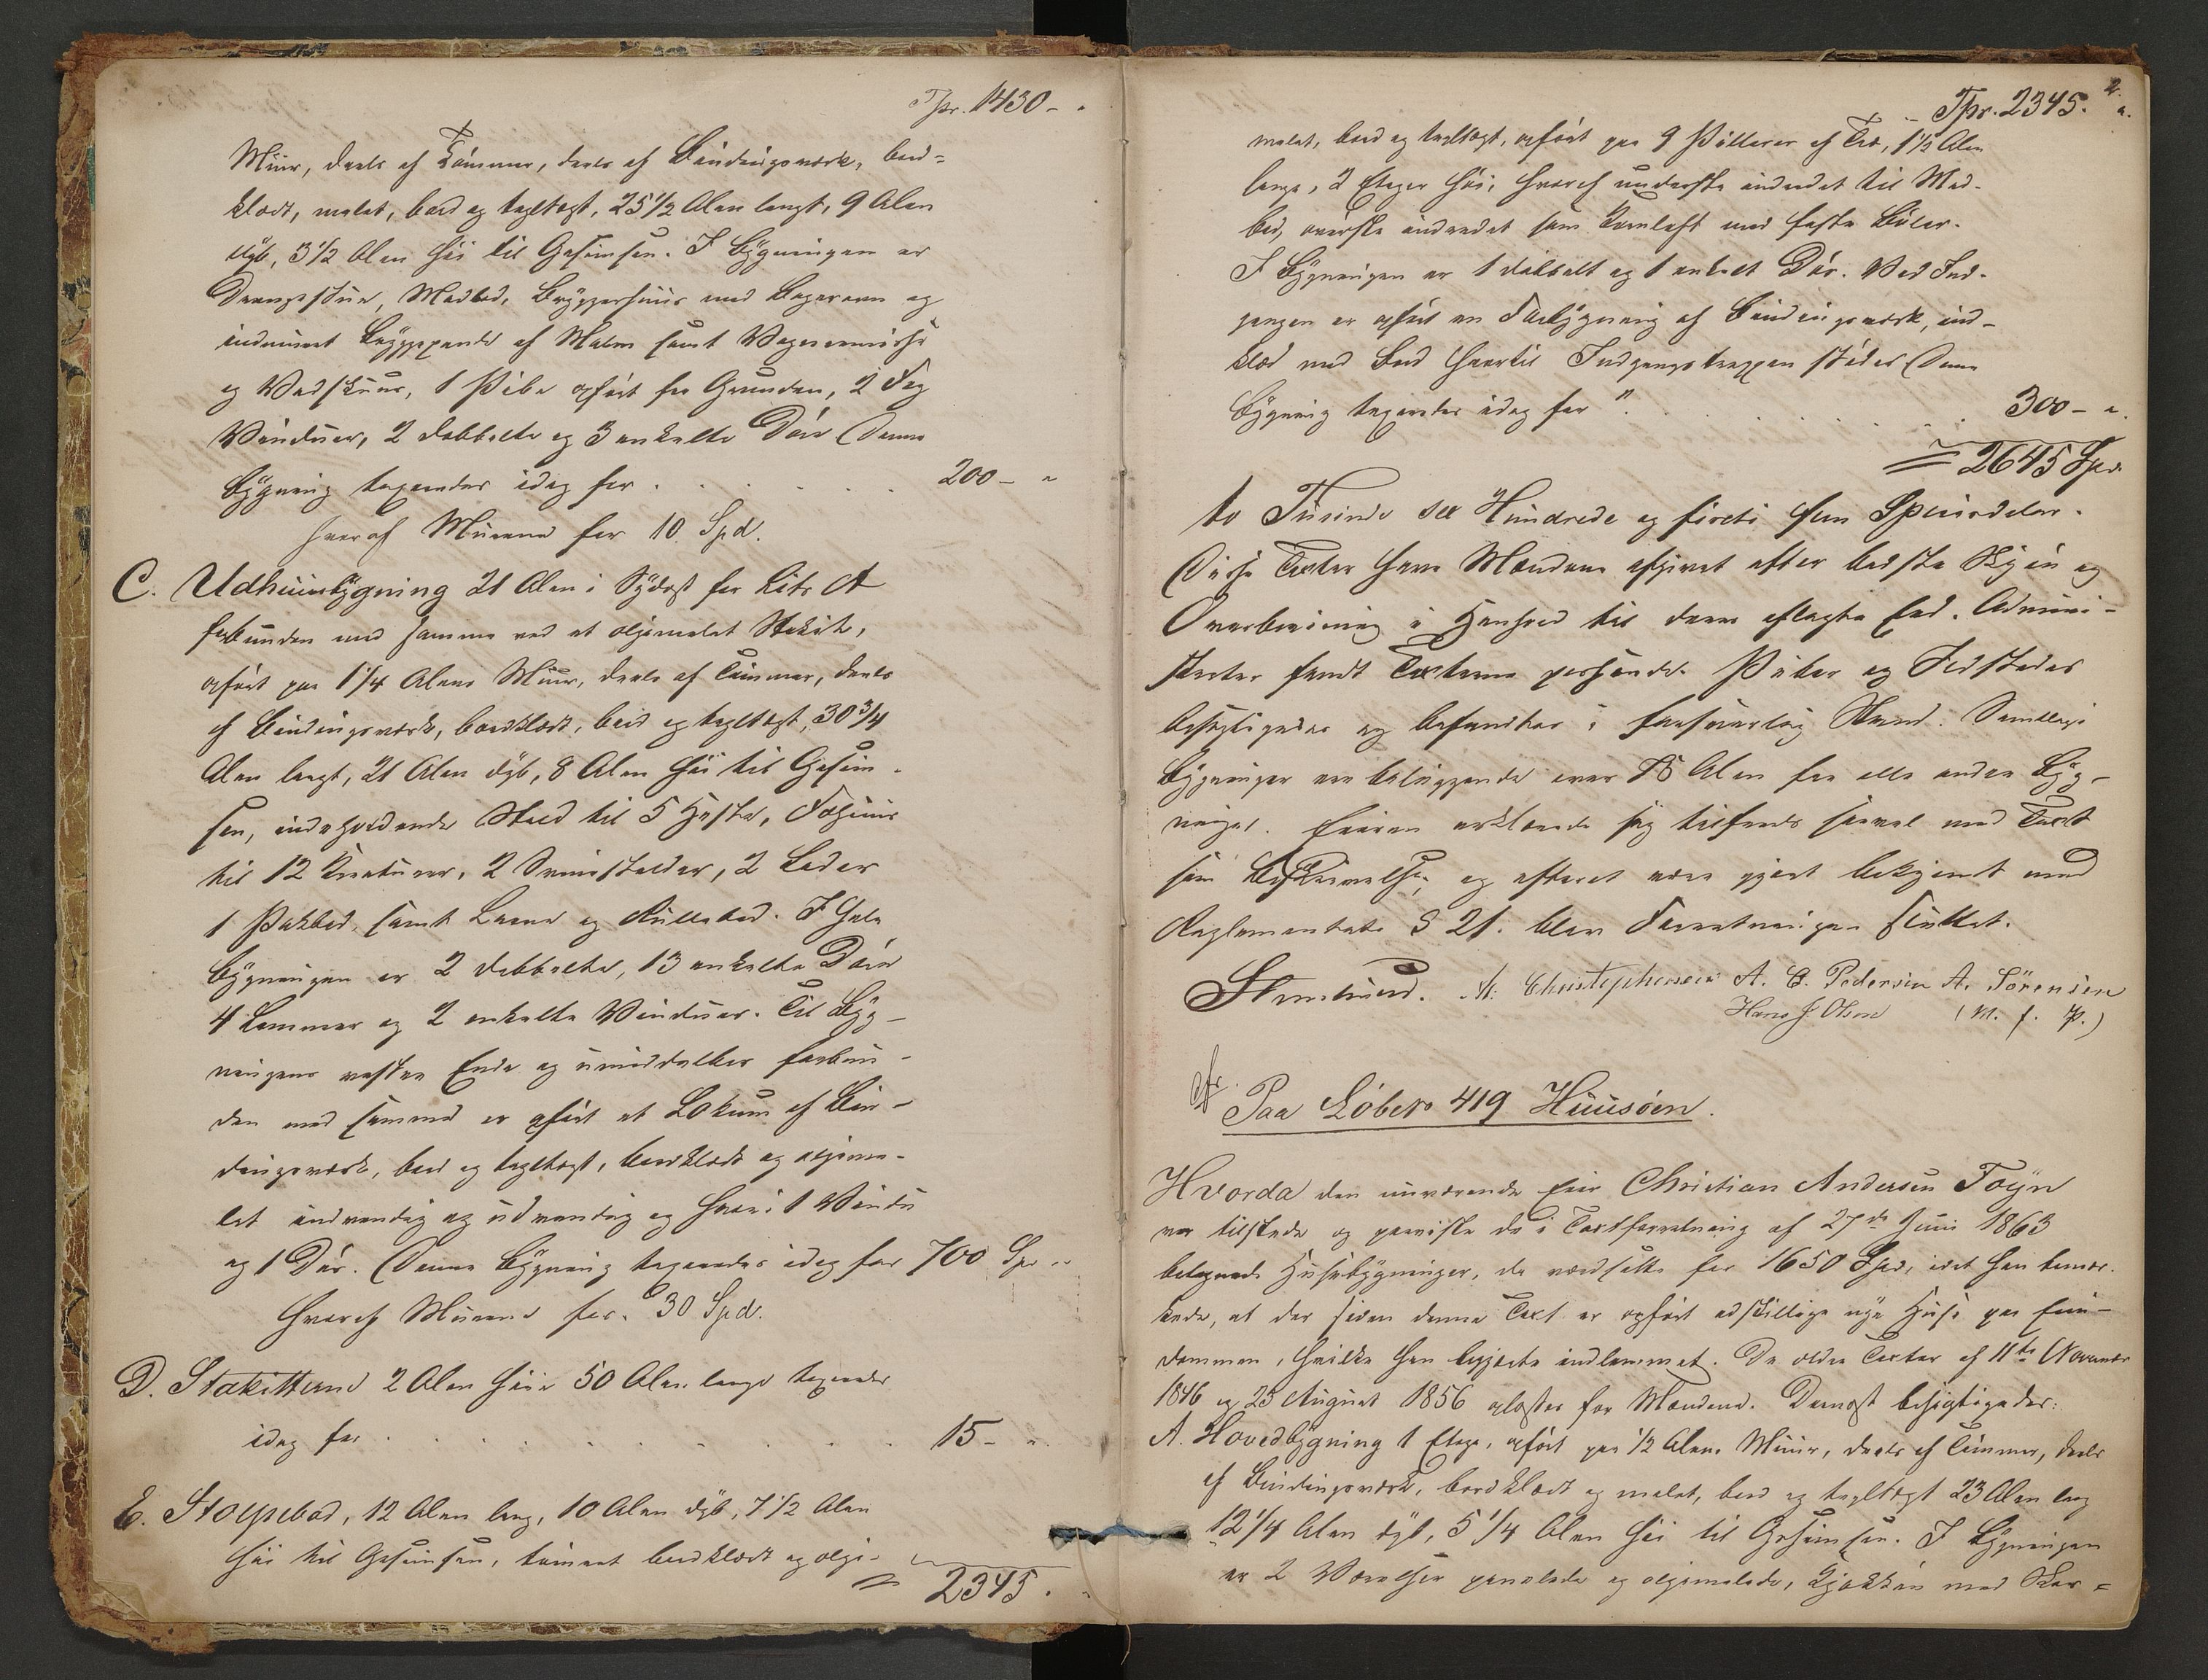 Tpr. 1430 - "
Muur, deels af Tömmer, deels af Bindingsværk, bord-
klædt, malet, bord og tagltegt, 25 1/2 Alen langt, 9 Alen
dyb, 3 1/2 Alen høi til Gesimsen. I Bygningen er
Drengestue, Madbod, Bryggerhuus med Bagerovn og
indmuret Bryggepande af Malm samt Vognremisse
og Vedskuur, 1 Pibe opført fra Grunden, 2 Fag
Vinduer, 2 dobbelte og 3 enkelte Döre (Denne
Bygning taxeredes idag for . . . . . . 200 - "
hvoraf Murene for 10 Spd.
C. Udhuusbygning 21 Alen i Sydost for Litr A
forbunden med samme ved et oljemalet Stakit,
opført paa 1 1/4 Alens Muur, deels af Tömmer, deels
af Bindingsværk, bordklædt, bord og tagltegt, 30 3/4
Alen langt, 21 Alen dyb, 8 Alen høi til Gesim-
sen, indeholdende Stald til 5 Heste, Fæhuus
til 12 Kreaturer, 2 Svinestalder, 2 Lader
1 Pakbod, samt Laave og Rullebod. I hele
Bygningen er 2 dobbelte, 13 enkelte Döre
4 Lemmer og 2 enkelte Vinduer. Til Byg-
ningens vestre Ende og umiddelbar forbun-
den med samme er opført et Lokum af Bin-
dingsværk, bord og tagltegt, bordklædt og oljema-
let indvendig og udvendig og hvori 1 Vindu
og 1 Dör. (Denne Bygning taxeredes idag for 700 Spd "
hvoraf Murene for. 30 Spd.
D. Stakitterne 2 Alen høie 50 Alen lange taxeredes
idag for . . . . . . . . . 15 - "
E. Stolpebod, 12 Alen lang, 10 Alen dyb, 7 1/2 Alen
høi til Gesimsen, tømret bordklædt og olje-
2345. "
2.
Tpr. 2345. "
malet, bord og tagltegt, opført paa 9 Pillarer af Træ, 1 1/2 Alen
lange, 2 Etager høi, hvoraf underste indredet til Mad-
bod, øverste indredet som Kornloft med faste Böler.
I Bygningen er 1 dobbelt og 1 enkelt Dör. Ved Ind-
gangen er opført en Forbygning af Bindingsværk, ind-
klæd med Bord hvortil Indgangstrappen støder (Denne
Bygning taxeredes idag for ". . . . . . 300 - "
2645 Spd.
to Tusinde sex Hundrede og firti fem Speciedaler.
Disse Taxter have Mændene afgivet efter bedste Skjøn og
Overbeviisning i Henhold til deres aflagte Eed. Admini-
strator fandt Taxterne passende. Piber og Ildsteder
besigtigedes og befandtes i forsvarlig Stand. Samtlige
Bygninger ere beliggende over 75 Alen fra alle andre Byg-
ninger. Eieren erklærede sig tilfreds saavel med Taxt
som Beskrivelse, og efterat være gjort bekjendt med
Reglementets § 21. blev Forretningen sluttet.
A. Christophersen A. C. Pedersen A. Sörensen
Hans J. Olsen (M. f. P.)
Paa Löbe No 419 Huusöen.
Hvorda den nuværende Eier Christian Andersen Foyn
var tilstede og paaviste de i Taxtforretning af 27de Juni 1863
betegnede Husebygninger, de værdsatte for 1650 Spd, idet han bemær-
kede, at der siden denne Taxt er opført adskillige nye Huse paa Eien-
dommen, hvilke han begjærte indlemmet. De ældre Taxter af 11te November
1846 og 25 August 1856 oplæstes for Mændene. Dernæst besigtigedes:
A. Hovedbygning 1 Etage, opført paa 1/2 Alens Muur, deels af Tömmer, deels
af Bindingsværk, bordklædt og malet, bord og tagltegt 23 Alen lang
12 1/4 Alen dyb, 5 1/4 Alen høi til Gesimsen. I Bygningen
er 2 Værelser panelede og oljemalede, Kjøkken med Skor-